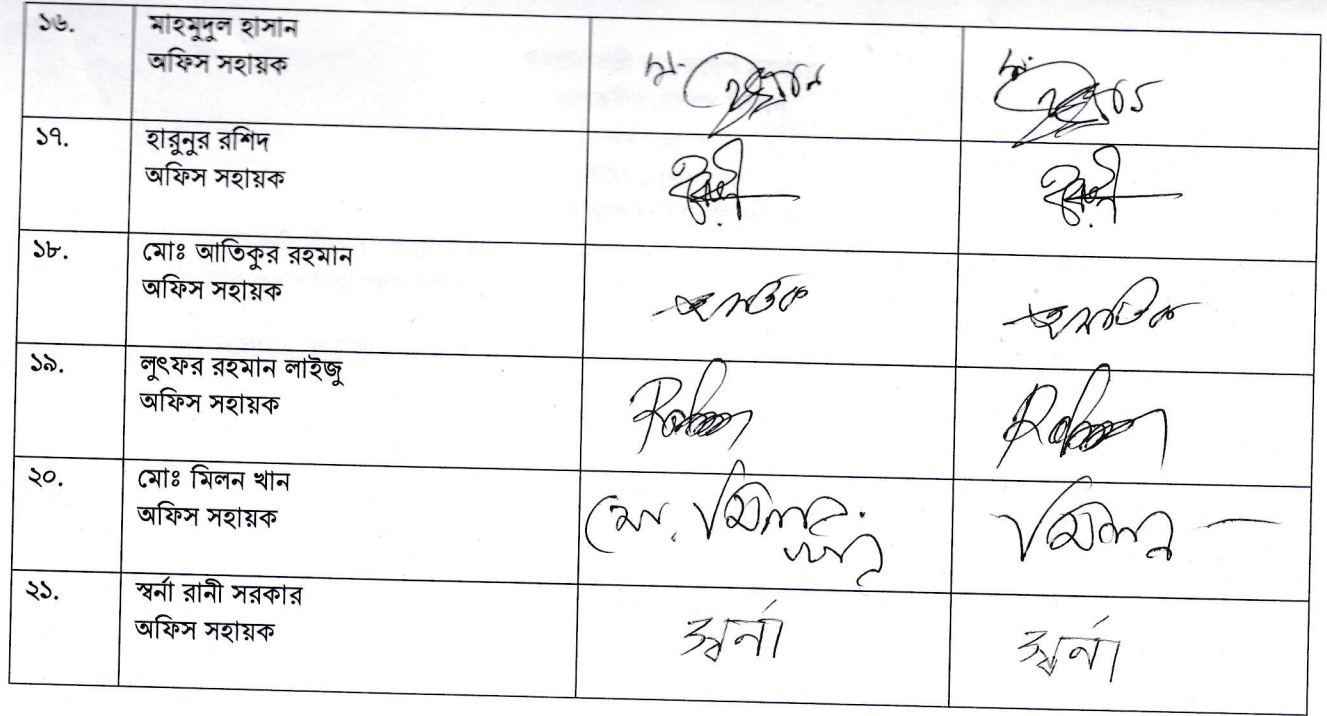 ১৬. মাহমুদুল হাসান
অফিস সহায়ক
১৭. হারুনুর রশিদ
অফিস সহায়ক
১৮. মোঃ আতিকুর রহমান
অফিস সহায়ক
আতিক আতিক
১৯. লুৎফর রহমান লাইজু
অফিস সহায়ক
২০. মোঃ মিলন খান
অফিস সহায়ক
মো. মিলন মিলন
খান
২১. স্বর্না রানী সরকার
অফিস সহায়ক
স্বর্না স্বর্না